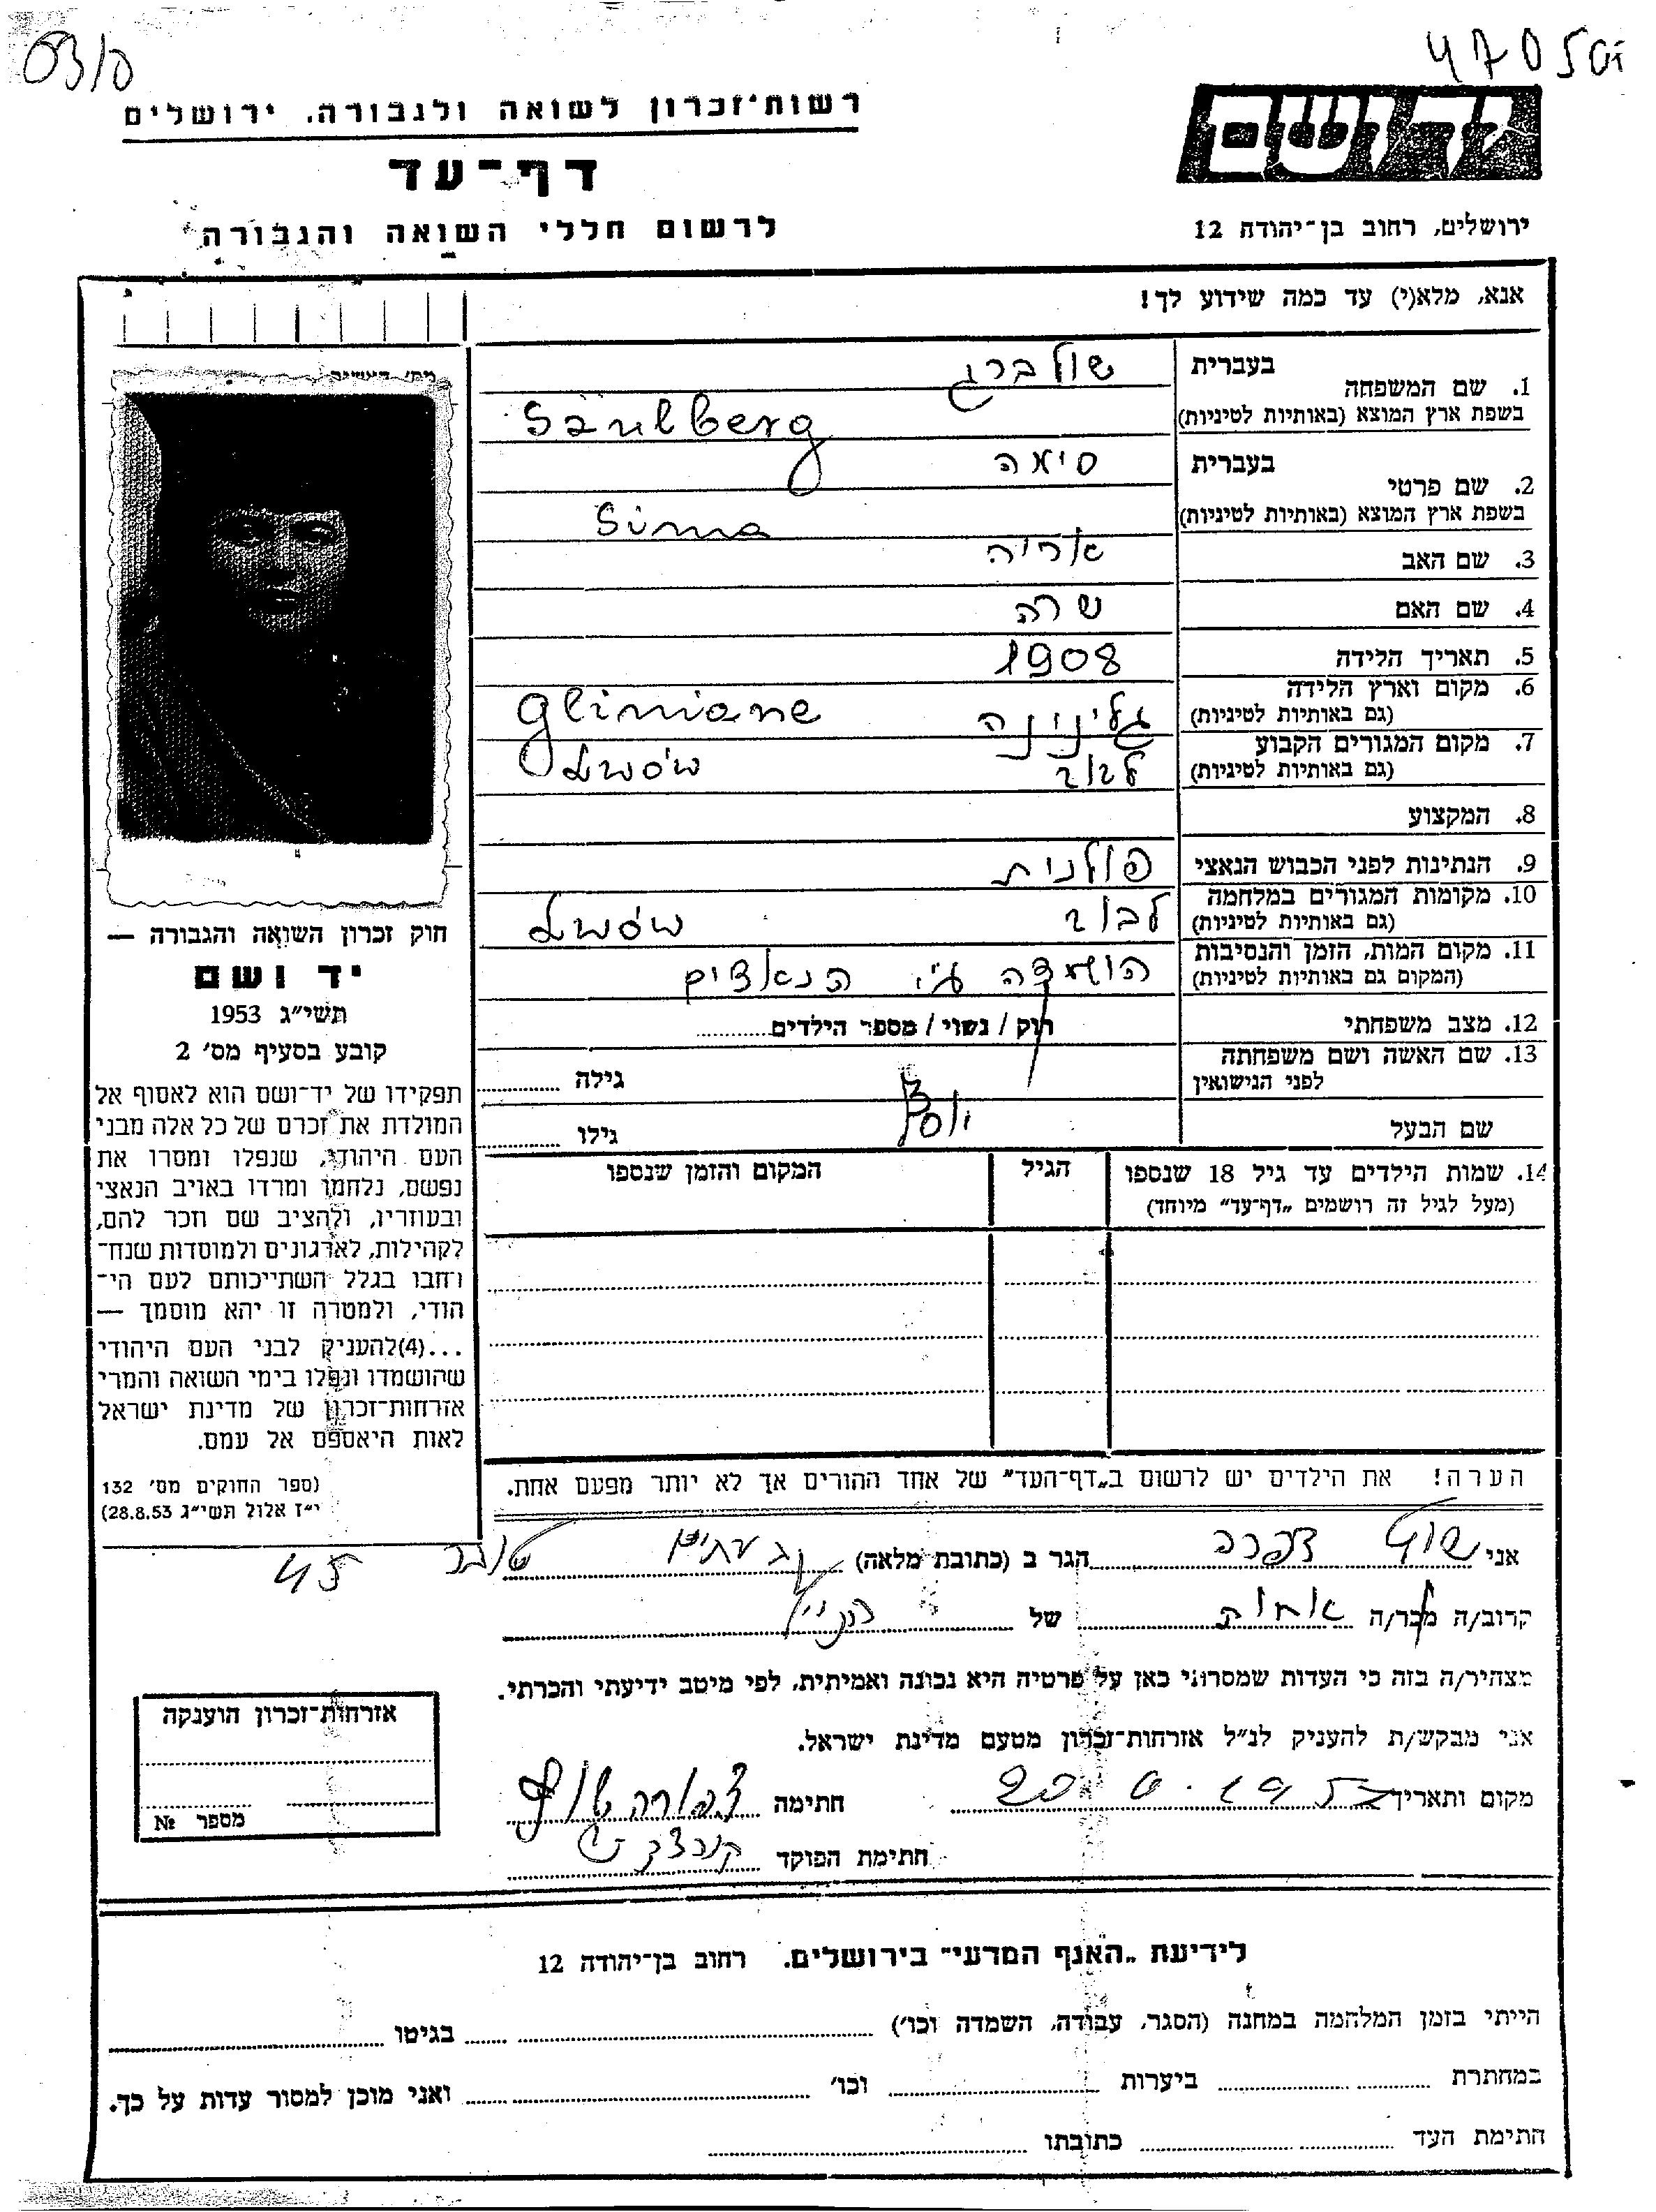 47050
רשות־זכרון לשואה ולגבורה. ירושלים
דף־עד
לרשום חללי השואה והגבורה
יד ושם
ירושלים, רחוב בן־יהודה 12
אנא, מלא(י) עד כמה שידוע לך!
1. שם המשפחה בעברית שולברג
בשפת ארץ המוצא (באותיות לטיניות) Saulberg
2. שם פרטי בעברית סימה
בשפת ארץ המוצא (באותיות לטיניות) Sima
3. שם האב אריה
4. שם האם שרה
5. תאריך הלידה 1908
6. מקום וארץ הלידה גלינינה Gliniane
(גם באותיות לטיניות)
7. מקום המגורים הקבוע לבוב Lwów
(גם באותיות לטיניות)
8. המקצוע
9. הנתינות לפני הכבוש הנאצי פולנית
10. מקומות המגורים במלחמה לבוב Lwów
(גם באותיות לטיניות)
11. מקום המות, הזמן והנסיבות הושמדה ע״י הנאצים
(המקום גם באותיות לטיניות)
12. מצב משפחתי רוק / נשוי / מספר הילדים
13. שם האשה ושם משפחתה
לפני הנישואין גילה
שם הבעל גילו
14. שמות הילדים עד גיל 18 שנספו הגיל המקום והזמן שנספו
(מעל לגיל זה רושמים „דף־עד״ מיוחד)
הערה! את הילדים יש לרשום ב„דף־העד״ של אחד ההורים אך לא יותר מפעם אחת.
חוק זכרון השואה והגבורה —
יד ושם
תשי״ג 1953
קובע בסעיף מס׳ 2
תפקידו של יד־ושם הוא לאסוף אל
המולדת את זכרם של כל אלה מבני
העם היהודי, שנפלו ומסרו את
נפשם, נלחמו ומרדו באויב הנאצי
ובעוזריו, ולהציב שם וזכר להם,
לקהילות, לארגונים ולמוסדות שנח־
רחבו בגלל השתייכותם לעם הי־
הודי, ולמטרה זו יהא מוסמך —
...(4)להעניק לבני העם היהודי
שהושמדו ונפלו בימי השואה והמרי
אזרחות־זכרון של מדינת ישראל
לאות היאספם אל עמם.
(ספר החוקים מס׳ 132
י״ז אלול תשי״ג 28.8.53)
אני הגר ב (כתובת מלאה) גבעתיים 45
קרוב/ה מכר/ה אחות של הנ״ל
מצהיר/ה בזה כי העדות שמסרתי כאן על פרטיה היא נכונה ואמיתית, לפי מיטב ידיעתי והכרתי.
אני מבקש/ת להעניק לנ״ל אזרחות־זכרון מטעם מדינת ישראל.
מקום ותאריך חתימה
חתימת הפוקד
אזרחות־זכרון הוענקה
מספר №
לידיעת „האגף המדעי״ בירושלים. רחוב בן־יהודה 12
הייתי בזמן המלחמה במחנה (הסגר, עבודה, השמדה וכו׳) בגיטו
במחתרת ביערות וכו׳ ואני מוכן למסור עדות על כך.
חתימת העד כתובתו